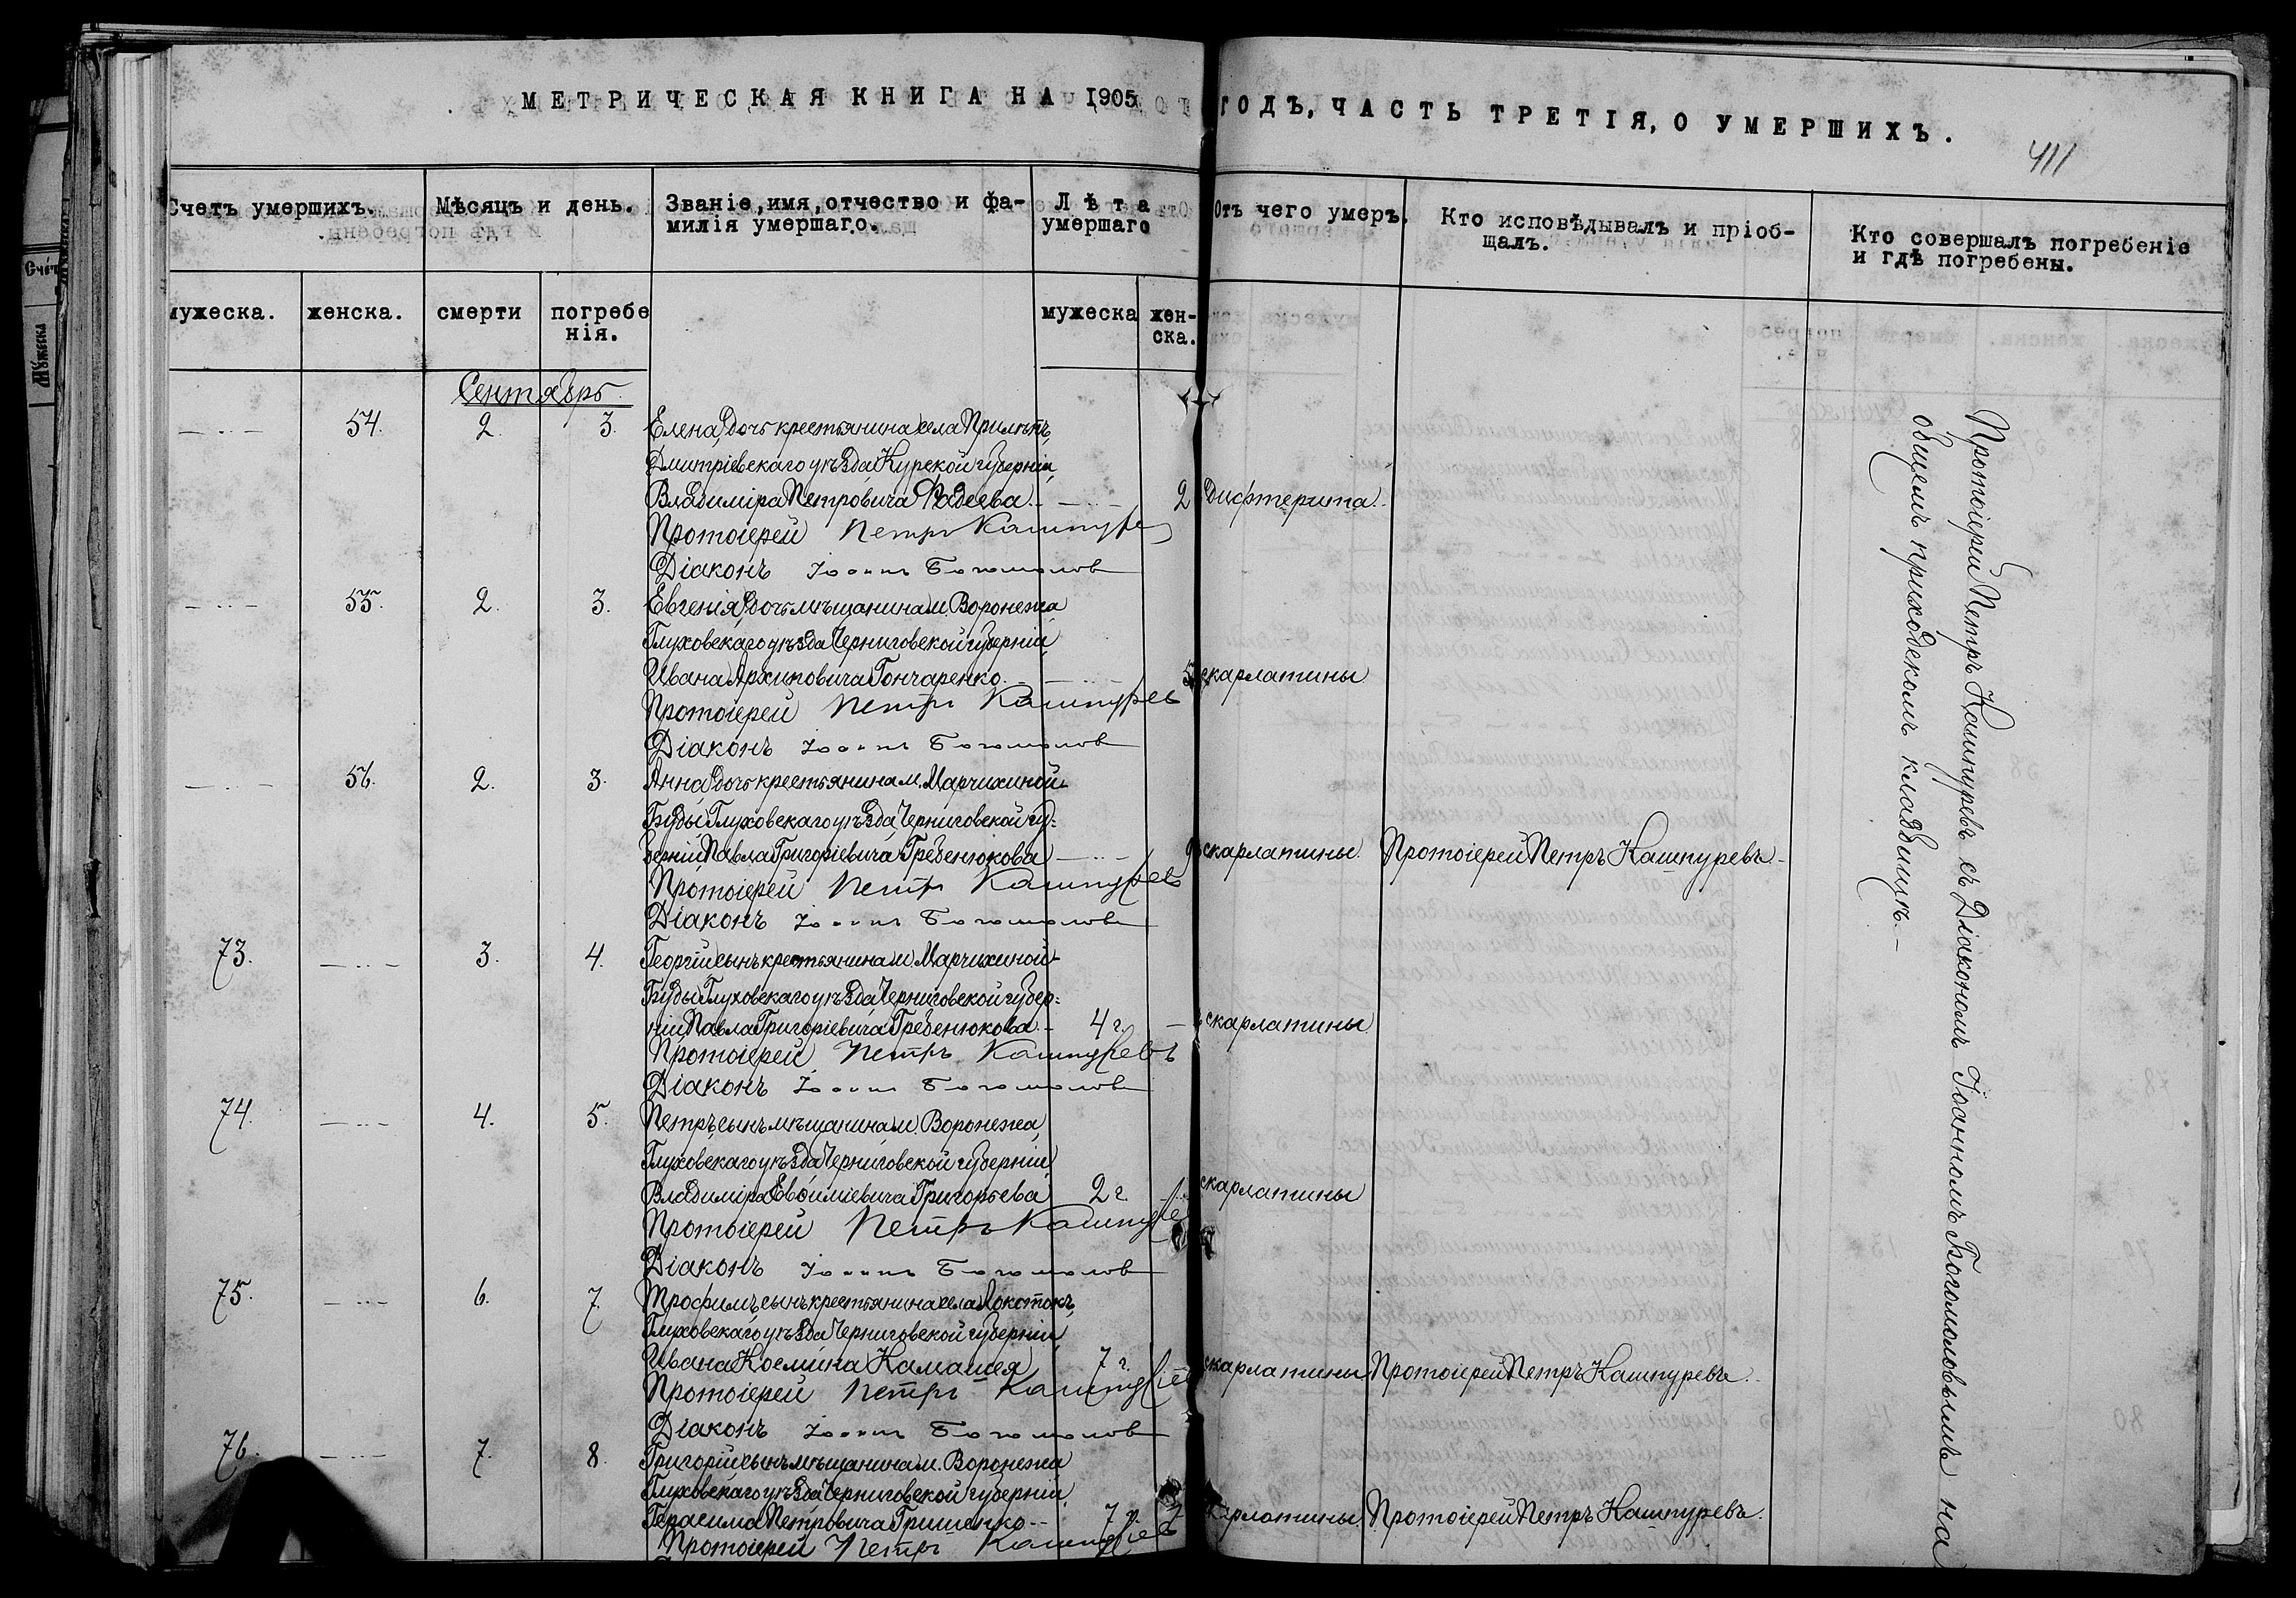 МЕТРИЧЕСКАЯ КНИГА НА 1905 ГОДЪ, ЧАСТЬ ТРЕТІЯ, О УМЕРШИХЪ.
411
Счетъ умершихъ.
Мѣсяцъ и день.
Званіе, имя, отчество и фа-
милія умершаго.
Лѣта
умершаго
Отъ чего умеръ.
Кто исповѣдывалъ и пріоб-
щалъ.
Кто совершалъ погребеніе
и гдѣ погребены.
мужеска.
женска.
смерти
погребе
нія.
мужеска
жен-
ска.
Сентябрь
54. 2. 3. Елена, дочь крестьянина села Прилѣпъ,
Дмитріевскаго уѣзда Курской губерніи,
Владиміра Петровича Фадеева. 2 дифтерита.
Протоіерей Петръ Кашпурев
Діаконъ Іоаннъ Богомолов
55. 2. 3. Евгенія, дочь мѣщанина м. Воронежа
Глуховскаго уѣзда Черниговской губерніи,
Ивана Архиповича Гончаренко. 5 скарлатины
Протоіерей Петръ Кашпурев
Діаконъ Іоаннъ Богомолов
56. 2. 3. Анна, дочь крестьянина м. Марчихиной-
Буды, Глуховскаго уѣзда, Черниговской гу-
берніи Павла Григоріевича Гребенюкова скарлатины. Протоіерей Петръ Кашпуревъ
Протоіерей Петръ Кашпурев
Діаконъ Іоаннъ Богомолов
73. 3. 4. Георгій сынъ крестьянина м. Марчихиной-
Буды, Глуховскаго уѣзда Черниговской губер-
ніи Павла Григоріевича Гребенюкова. 4 г. скарлатины
Протоіерей Петръ Кашпуревъ
Діаконъ Іоаннъ Богомолов
74. 4. 5. Петръ, сынъ мѣщанина м. Воронежа,
Глуховскаго уѣзда Черниговской губерніи,
Владиміра Евѳиміевича Григорьева 2 г. скарлатины
Протоіерей Петръ Кашпурев
Діаконъ Іоаннъ Богомолов
75. 6. 7. Трофимъ, сынъ крестьянина села Локотокъ,
Глуховскаго уѣзда Черниговской губерніи,
Ивана Космина Камашея 7 г. скарлатины Протоіерей Петръ Кашпуревъ.
Протоіерей Петръ Кашпурев
Діаконъ Іоаннъ Богомолов
76. 7. 8. Григорій сынъ мѣщанина м. Воронежа
Глуховскаго уѣзда Черниговской губерніи,
Герасима Петровича Гришенко 7 г. скарлатины. Протоіерей Петръ Кашпуревъ.
Протоіерей Петръ Кашпурев
Протоіерей Петръ Кашпуревъ съ Діакономъ Іоанномъ Богомоловымъ на
общемъ приходскомъ кладбищѣ.